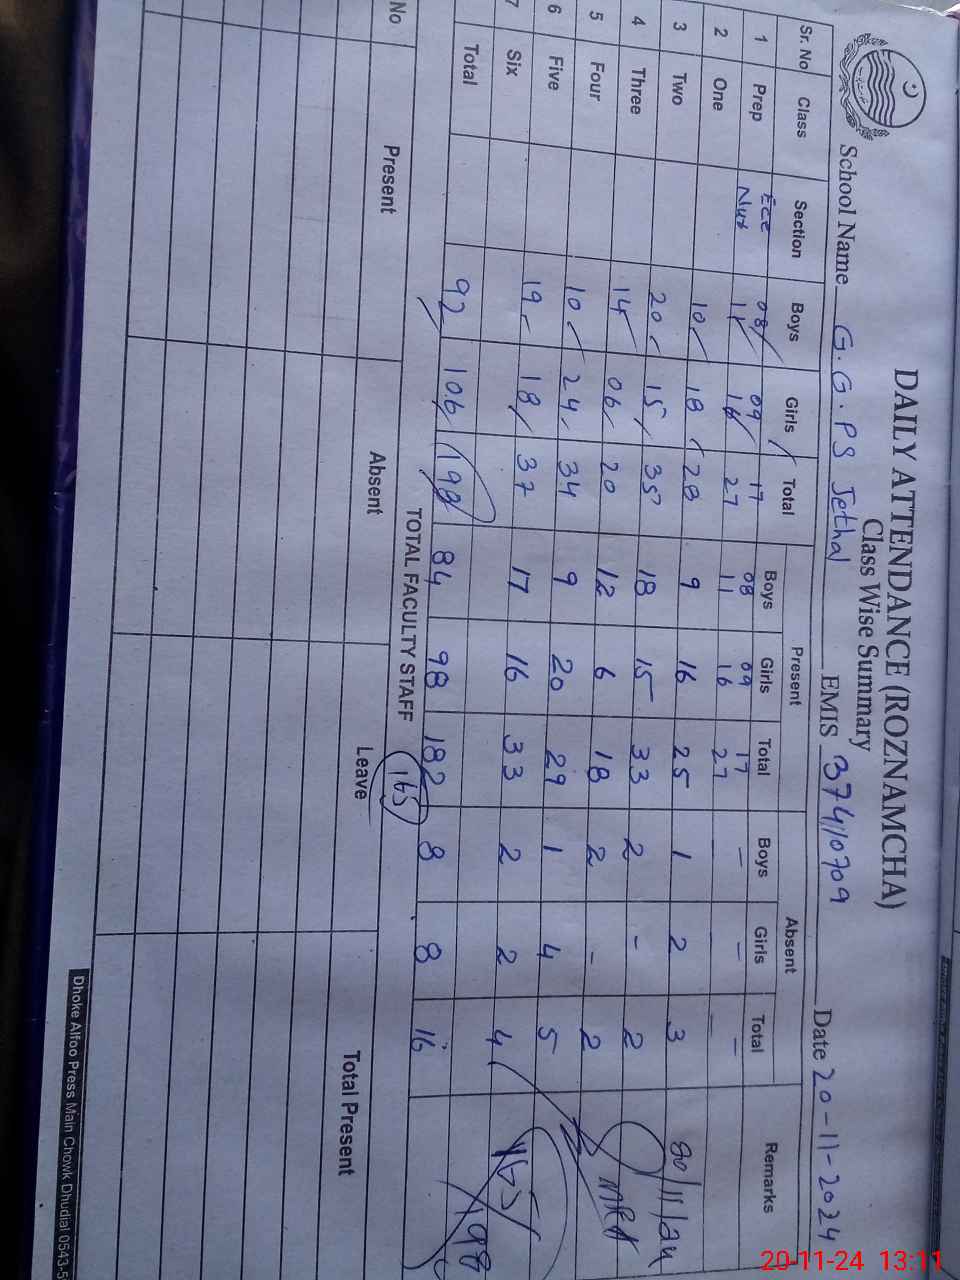 DAILY ATTENDANCE (ROZNAMCHA)
Class Wise Summary
School Name G.G.PS Jethal EMIS 37410709 Date 20-11-2024
Present Absent
Sr. No Class Section Boys Girls Total Boys Girls Total Boys Girls Total Remarks
1 Prep Ece 08 09 17 08 09 17 - - -
Nur 11 16 27 11 16 27 - - -
2 One 10 18 28 9 16 25 1 2 3
3 Two 20 15 35 18 15 33 2 - 2
4 Three 14 06 20 12 6 18 2 - 2
5 Four 10 24 34 9 20 29 1 4 5
6 Five 19 18 37 17 16 33 2 2 4
7 Six
Total 92 106 198 84 98 182 8 8 16
165
165
198
TOTAL FACULTY STAFF
No Present Absent Leave Total Present
Dhoke Alfoo Press Main Chowk Dhudial 0543-5
20-11-24 13:11